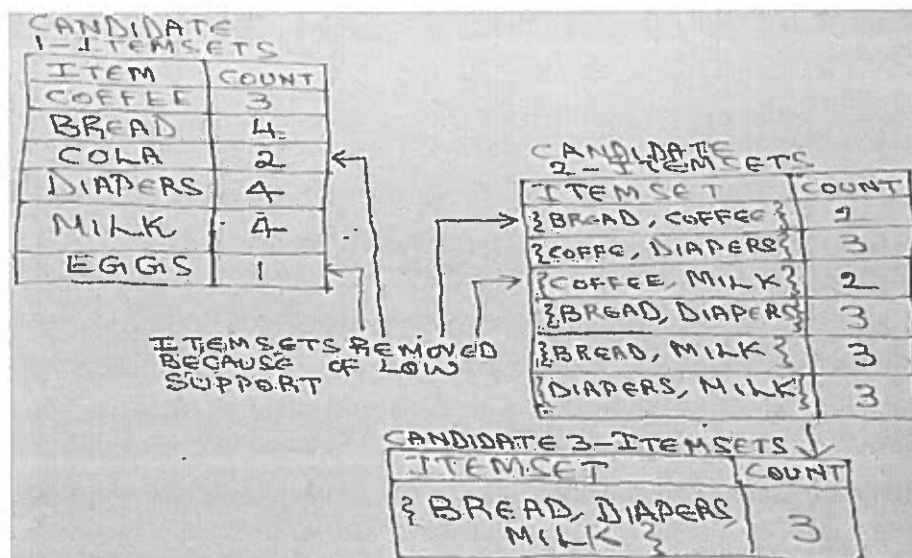 CANDIDATE
1-ITEMSETS
ITEM COUNT
COFFEE 3
BREAD 4
COLA 2
DIAPERS 4
MILK 4
EGGS 1
ITEMSETS REMOVED
BECAUSE OF LOW
SUPPORT
CANDIDATE
2-ITEMSETS
ITEMSET COUNT
{BREAD, COFFEE}
{COFFE, DIAPERS} 3
{COFFEE, MILK} 2
{BREAD, DIAPERS} 3
{BREAD, MILK} 3
{DIAPERS, MILK} 3
CANDIDATE 3-ITEMSETS
ITEMSET COUNT
{BREAD, DIAPERS,
MILK} 3